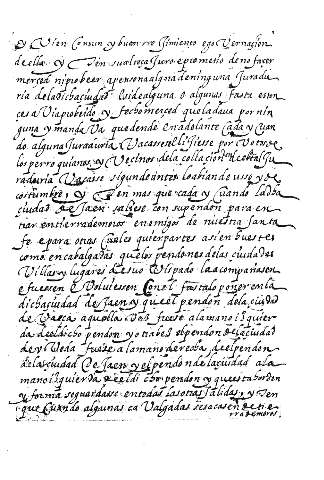 y Vien Comun y buen rregimiento e gouernacion
de ella y Ten su alteça Juro e prometio de no facer
merced ni probeer a persona alguna de ninguna Juradu
ria de la dicha ciudad E si de alguna o algunas fasta enton
ces auia probeido y fecho merced que la daua por nin
guna y manda Va que dende en adelante cada y cuan
do alguna Juraduria Vacase se eligiese por Votos de
los perroquianos y Vecinos de la collacion de la tal Ju
raduria Vacase segund e antes lo abian de uso y de
costumbre y Ten mas que cada y cuando la dha
ciudad de Jaen saliese con su pendon para en
trar en tierra de moros enemigos de nuestra santa
fe e para otras cuales quier partes asi en huestes
como en cabalgadas que los pendones de las ciudades
Villas y lugares de su obispado la acompañasen
e fuesen e Volviesen con el fasta lo poner en la
dicha ciudad de Jaen y que el pendon de la ciudad
de Vaeça aquella Vez fuese a la mano izquier
da del dicho pendon y otra bez el pendon de la ciudad
de Vbeda fuese a la mano derecha de el pendon
de la ciudad de Jaen y el pendon de la ciudad a la
mano izquierda de el dicho pendon y que esta horden
y forma se guardase en todas las otras salidas y Ten
que cuando algunas caValgadas se sacasen de tie
rra de moros